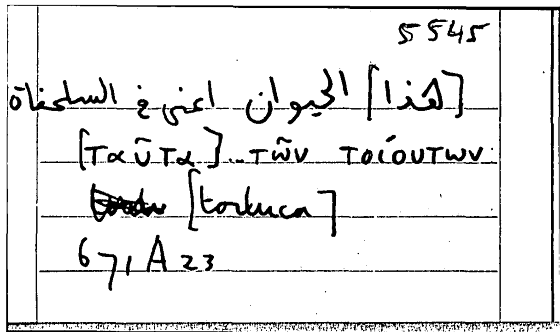 5545
[هذا] الحيوان اعنى فى السلحفاة
[ταῦτα]..τῶν τοιούτων
[tortuca]
671 A 23